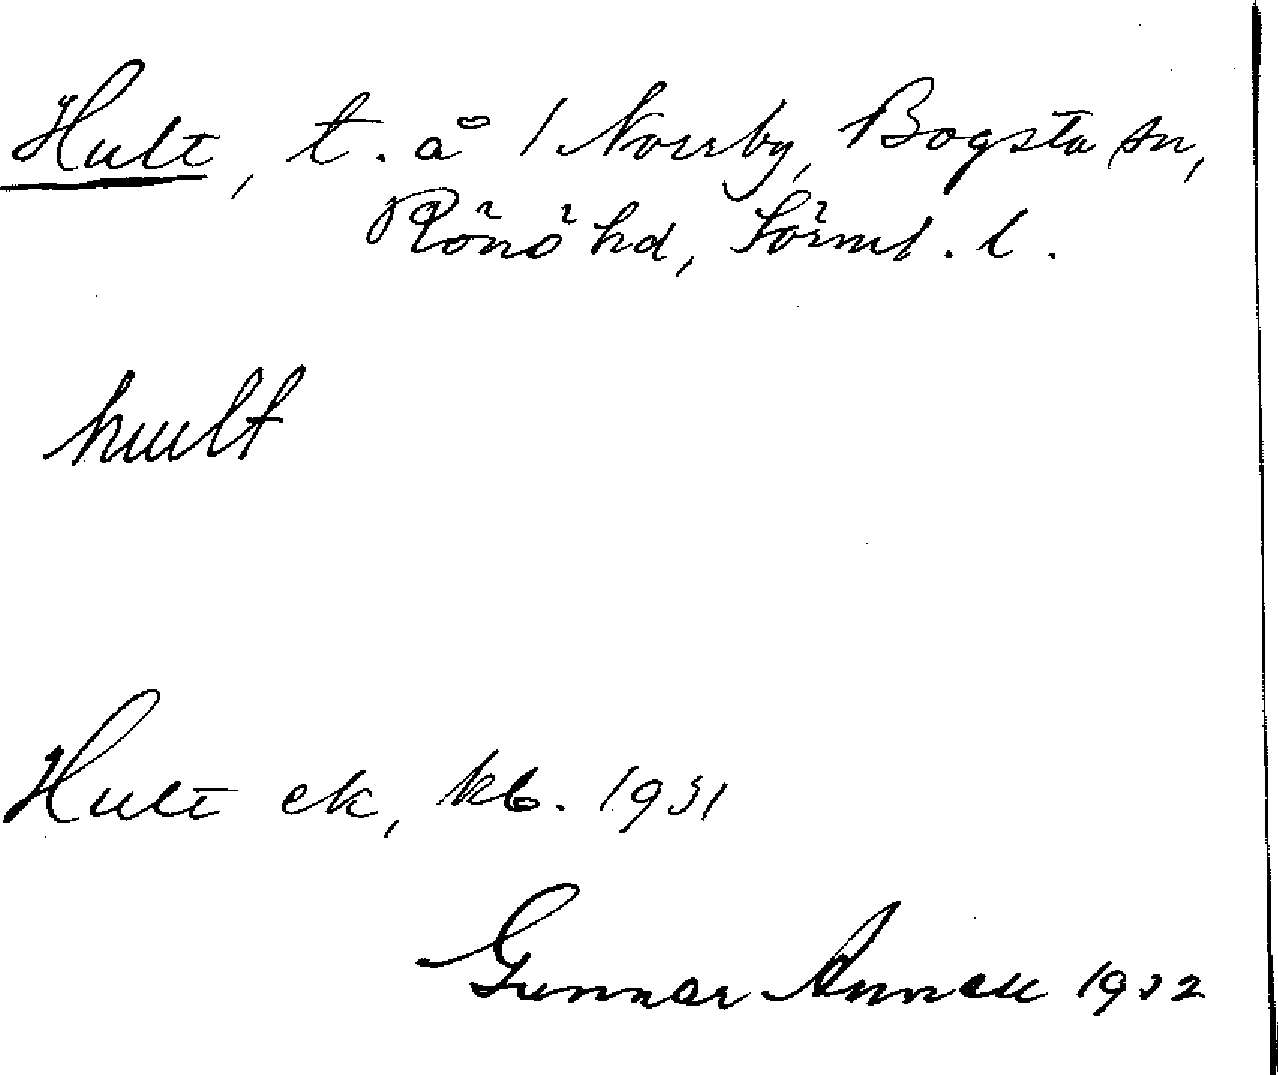 Hult, t. å 1 Norrby, Bogsta sn,
Rönö hd, Sörml. l.
hult
Hult ek, kb. 1931
Gunnar Annell 1932